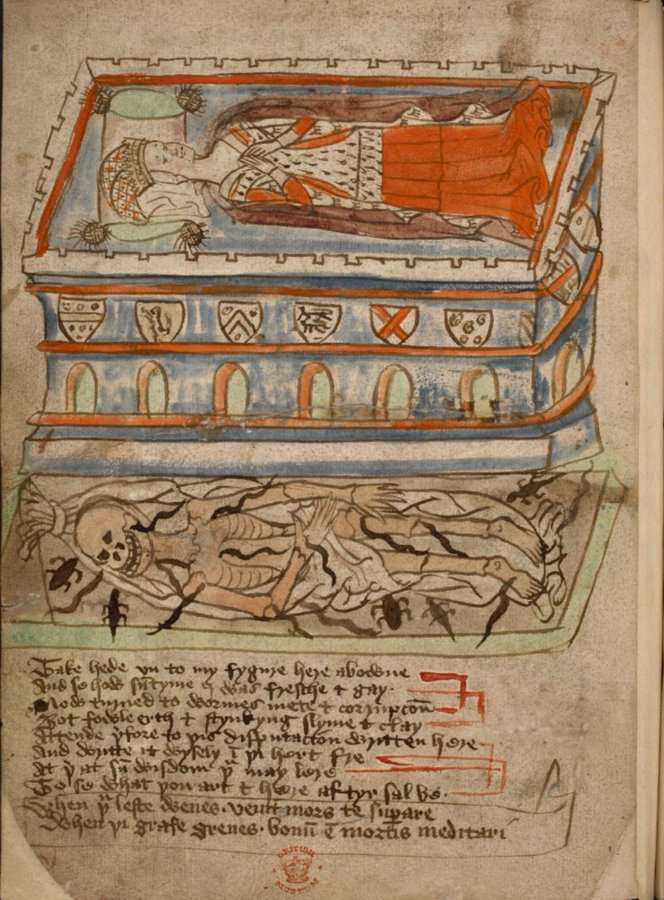 Take hede vn to my fygure here abowne
And se how sūtyme I was fresche & gay
Now turned to wormes mete & corrupcōn
Bot fowle erth & stynkyng slyme & clay
Attende þfore to þis disputacōn written here
And writte it wysely ī þi hert fre
At þ at sū wisdom þu may lere
To se what þou art & here aftyr sal be
When þu leste wenes · venit mors te supare
When þi grafe grenes · bonū ē mortis meditari
BRITISH
MUSEUM